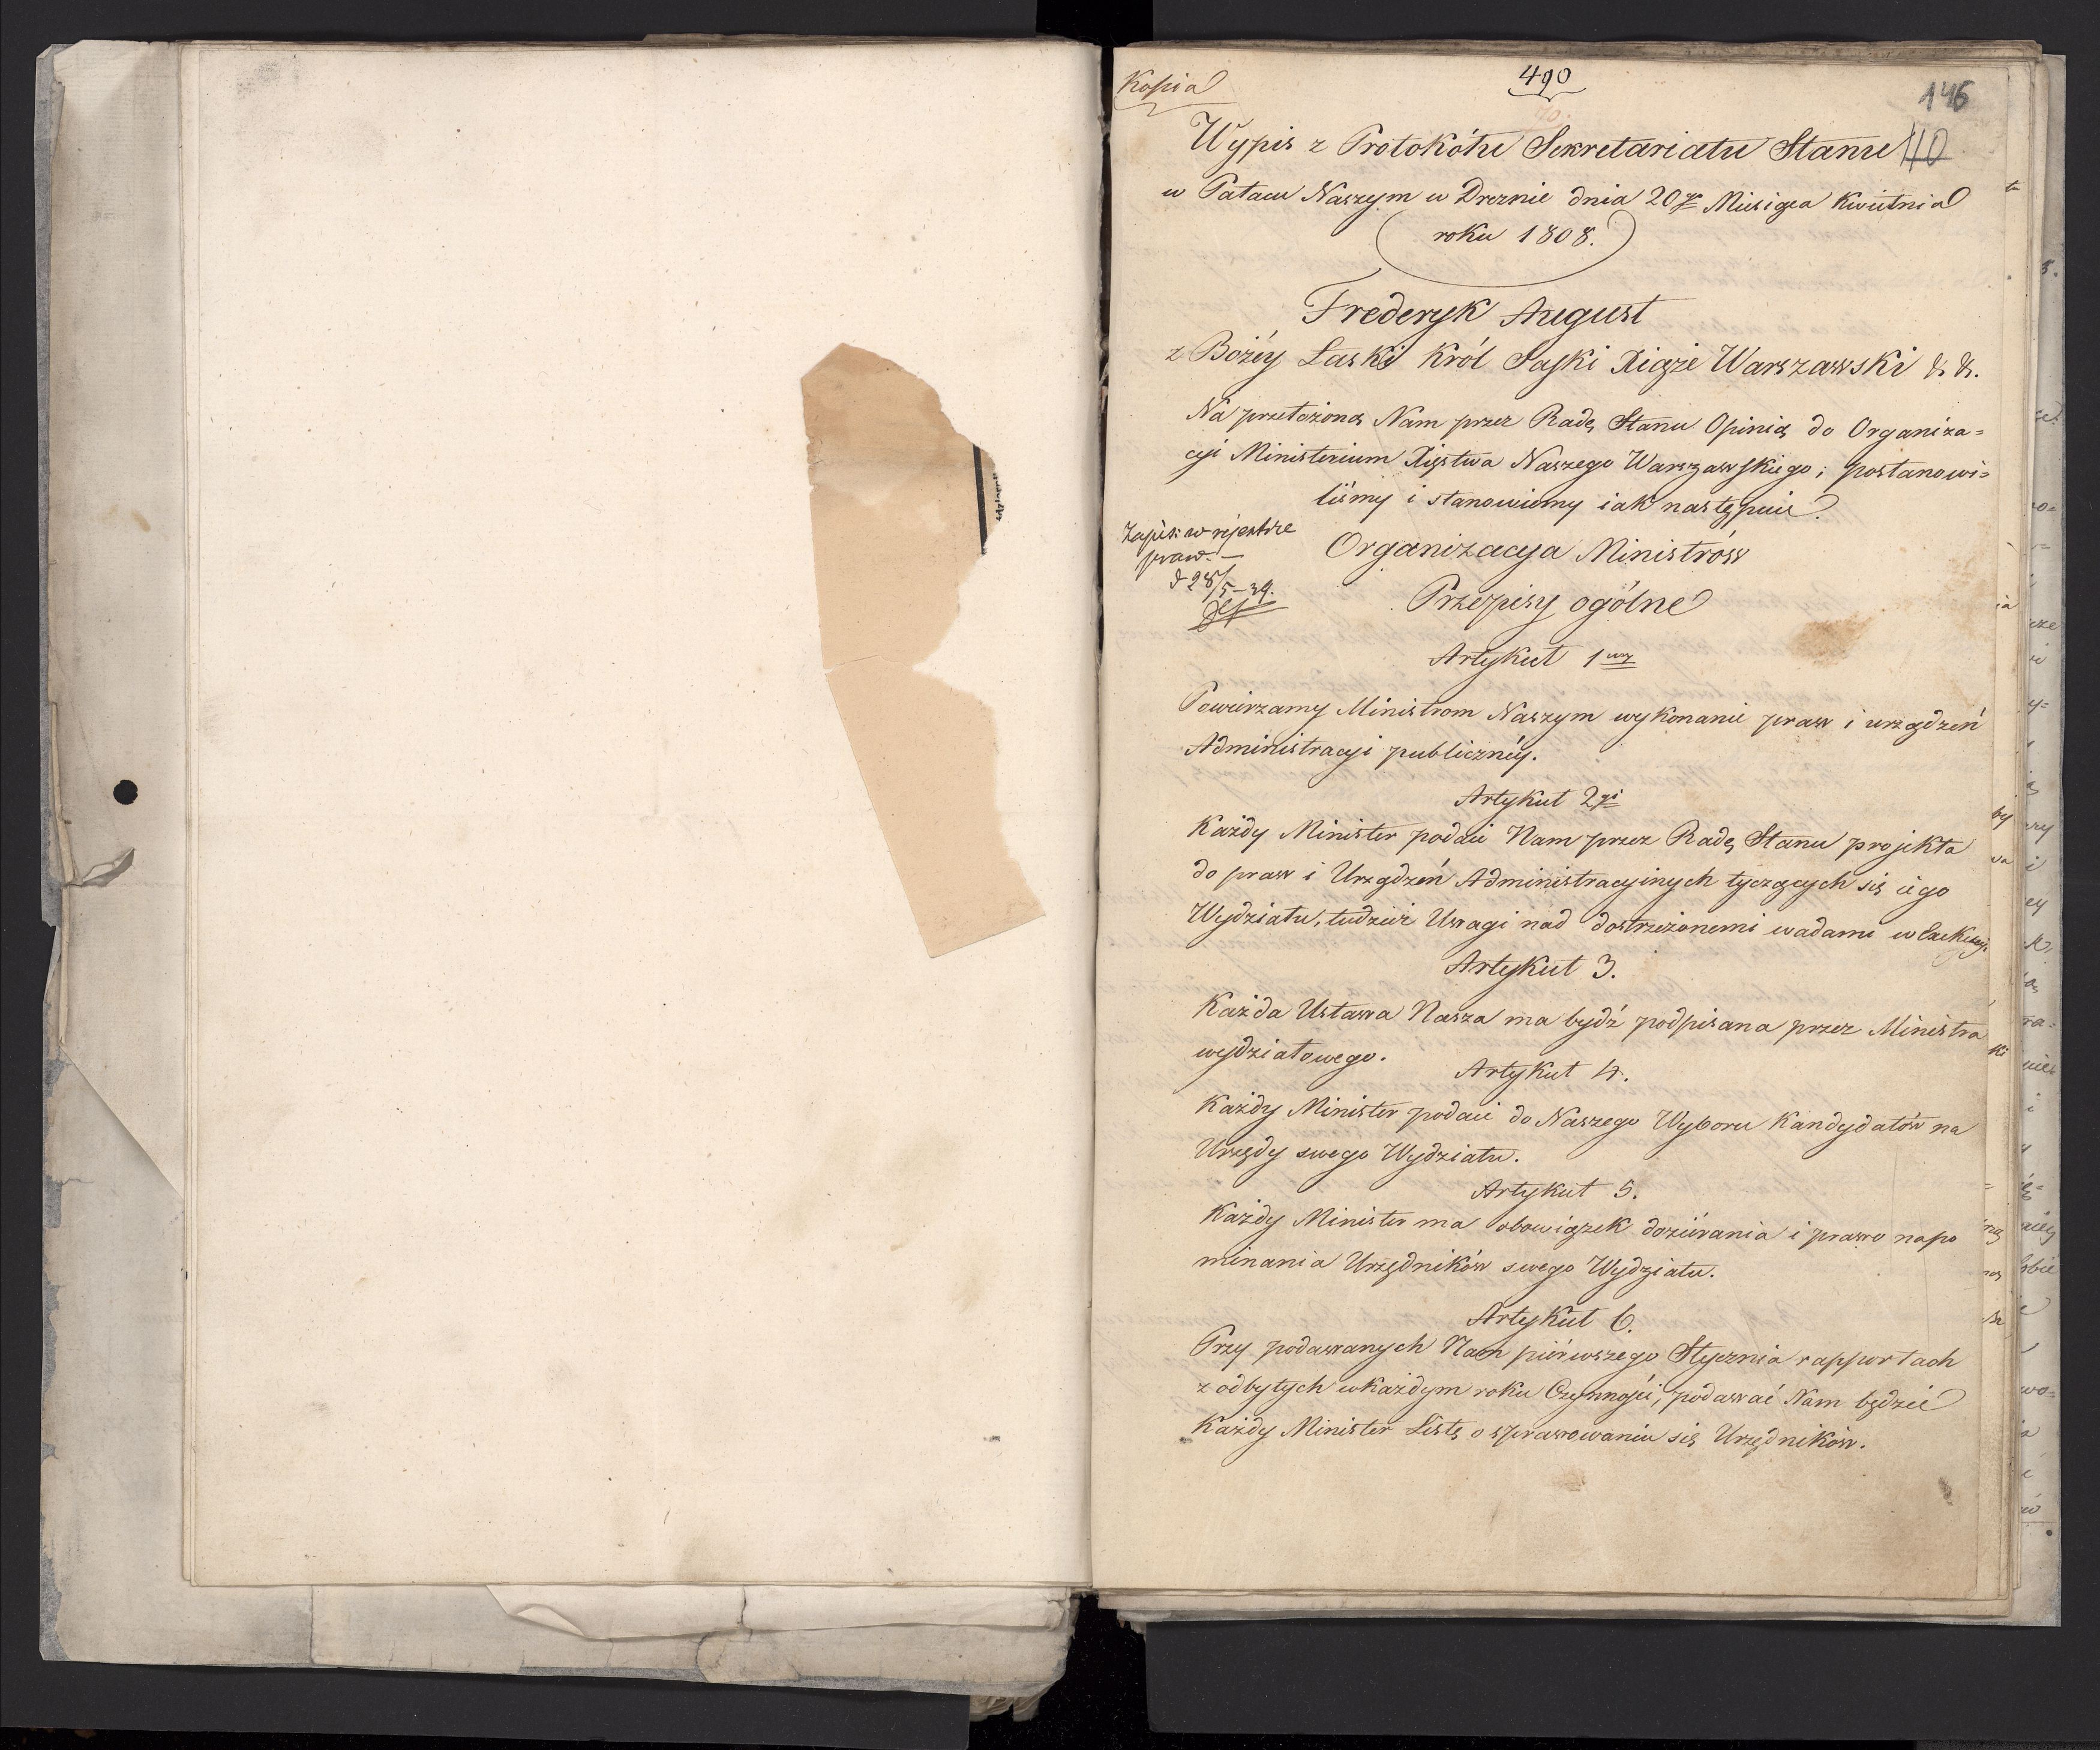 Kopia
490
146
110
Wypis z Protokółu Sekretariatu Stanu
w Pałacu Naszym w Dreznie dnia 20go Miesiąca Kwietnia
roku 1808.
Frederyk August
z Bożéy Łaski Król Saski Xiąże Warszawski & &.
Na przełożoną Nam przez Radę Stanu Opinią do Organiza=
cyi Ministerium Xięstwa Naszego Warszawskiego; postanowi=
liśmy i stanowiemy iak następuie.
Zapis. w rejestrze
praw. —
d 28/5–39.
Organizacya Ministrów
Przepisy ogólne
Artykuł 1wszy
Powierzamy Ministrom Naszym wykonanie praw i urządzeń
Administracyi publicznéy.
Artykuł 2gi
Każdy Minister podaie Nam przez Radę Stanu projekta
do praw i Urządzeń Administracyinych tyczących się iego
Wydziału, tudzież Uwagi nad dostrzeżonemi wadami w
Artykuł 3.
Każda Ustawa Nasza ma bydź podpisana przez Ministra
wydziałowego.
Artykuł 4.
Każdy Minister podaie do Naszego Wyboru Kandydatów na
Urzędy swego Wydziału.
Artykuł 5.
Każdy Minister ma obowiązek dozierania i prawo napo
minania Urzędników swego Wydziału.
Artykuł 6.
Przy podawanych Nam piérwszego Stycznia rapportach
z odbytych w każdym roku Czynności, podawać Nam będzie
Każdy Minister Listę o sprawowaniu się Urzędników.